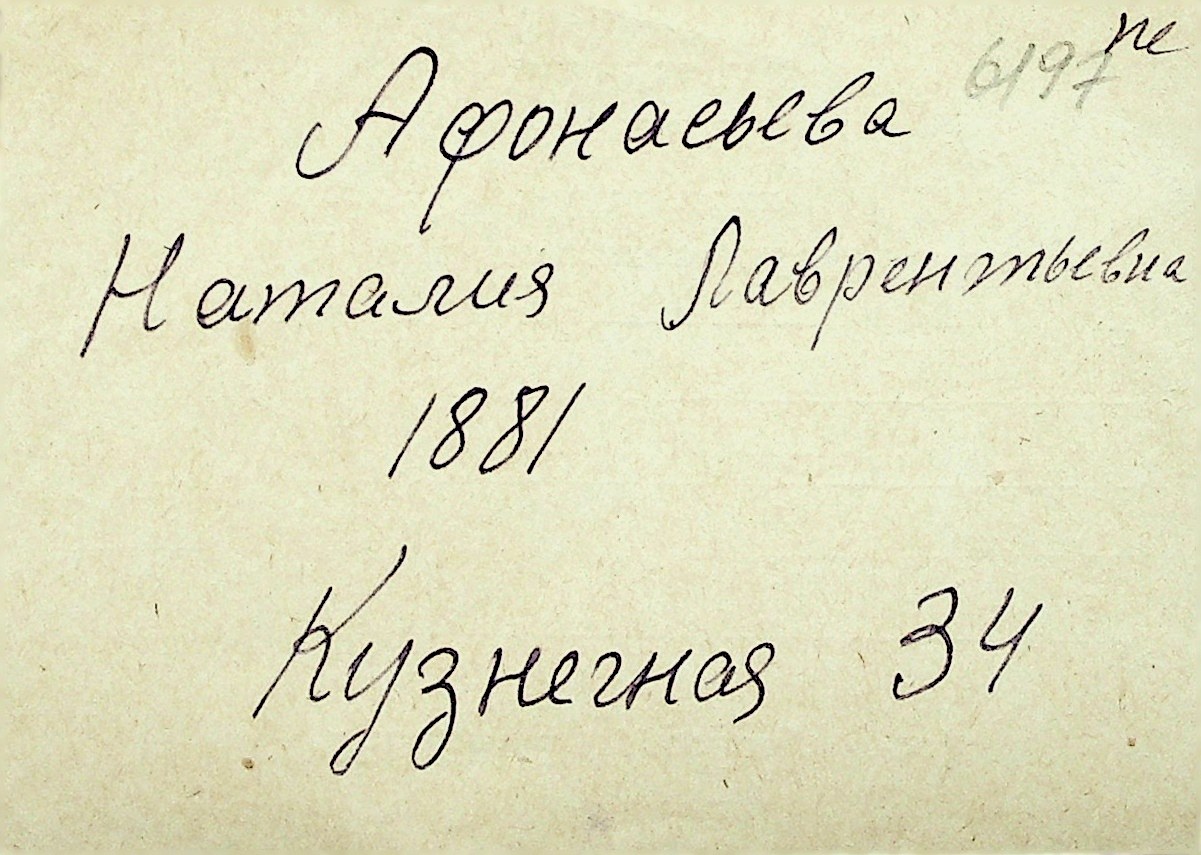 6197
Афонасьева
Наталия Лаврентьевна
1881
Кузнечная 34